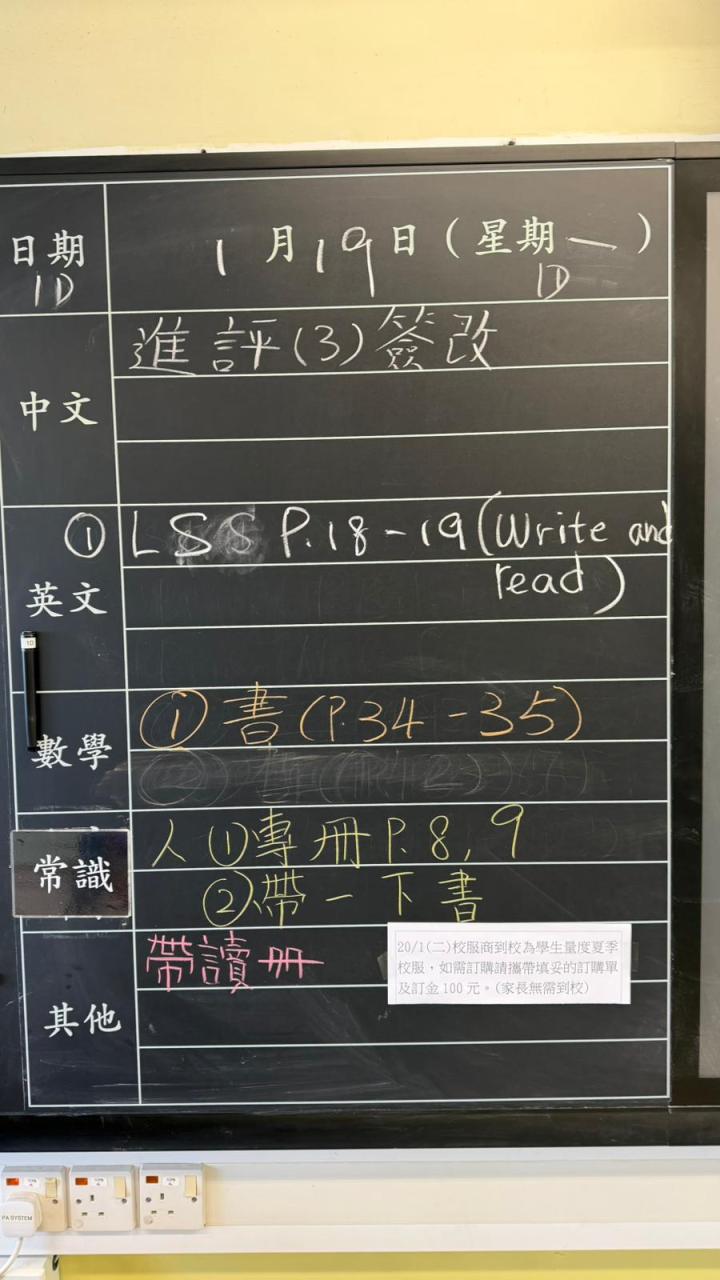 日期 1月19日(星期一)
1D 1D
中文 進評(3)簽改
英文 ① LSS P.18-19(Write and
read)
數學 ①書(P.34-35)
常識 人①專冊P.8,9
②帶一下書
其他 帶讀冊
20/1(二)校服商到校為學生量度夏季
校服,如需訂購請攜帶填妥的訂購單
及訂金100元。(家長無需到校)
1D
PA SYSTEM